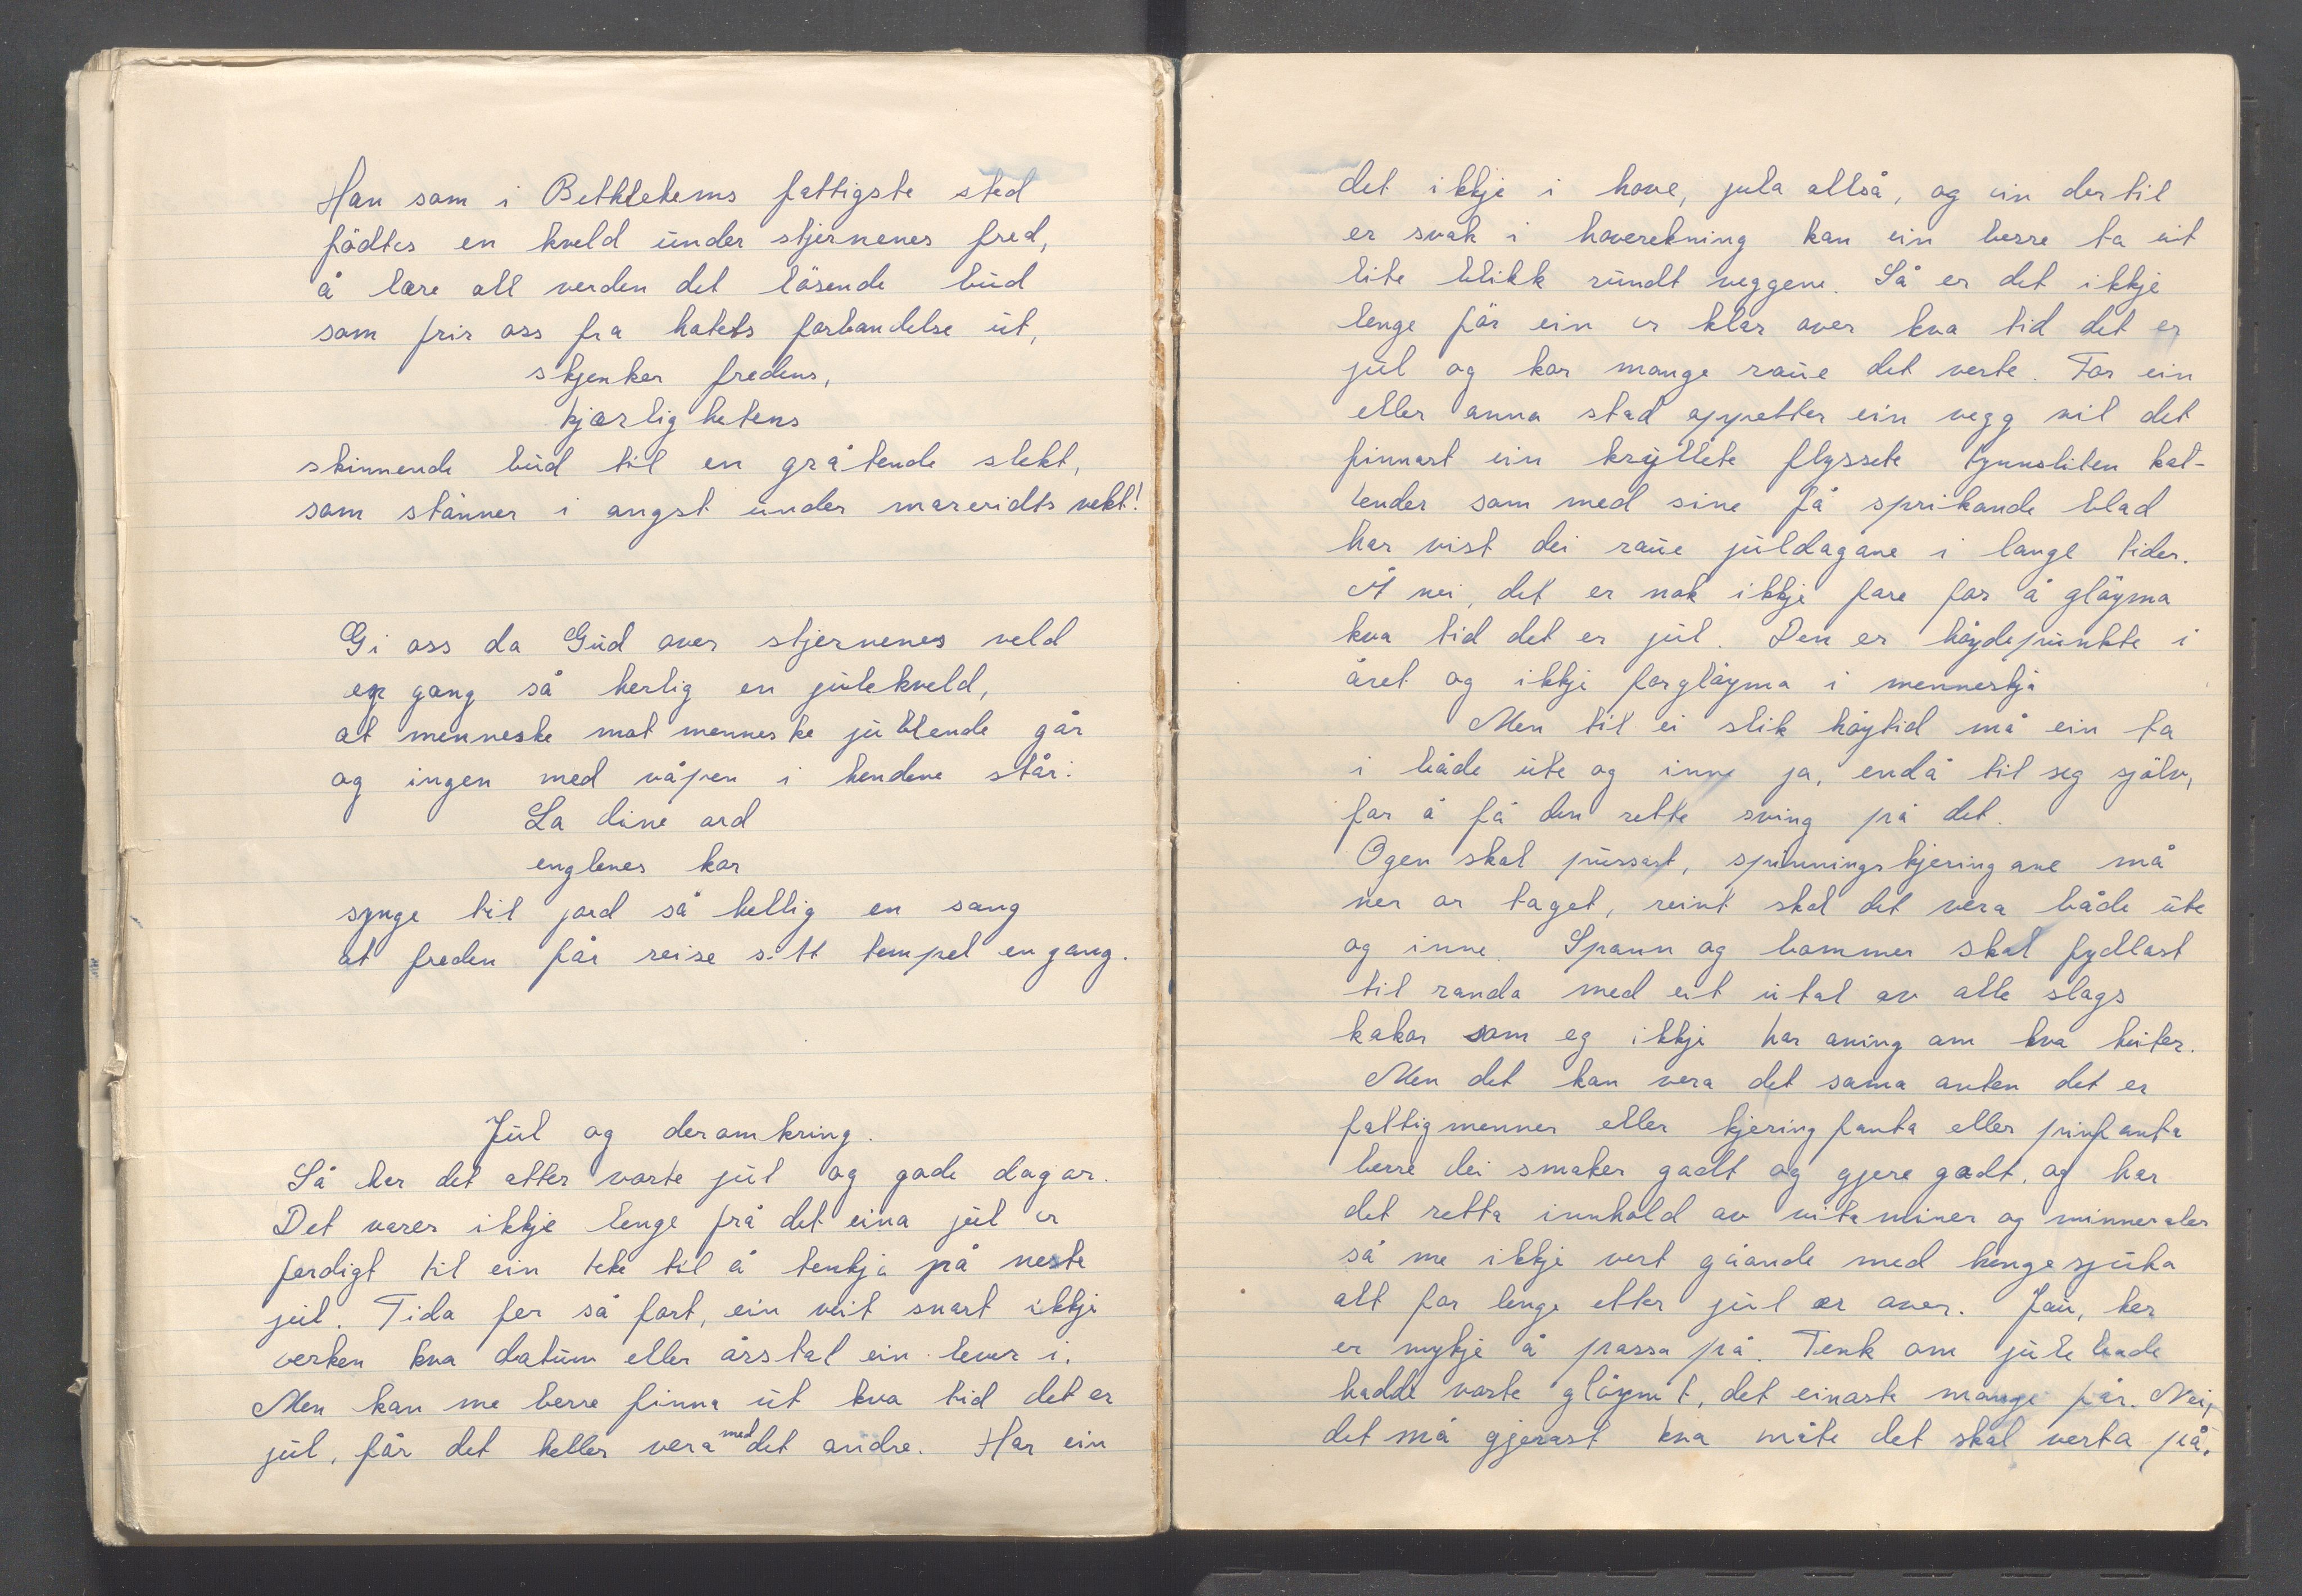 Han som i Bethlehems fattigste sted
födtes en kveld under stjernenes fred,
å lære all verden det lösende bud
som frir oss fra hatets forbandelse ut,
skjenker fredens,
kjærlighetens
skinnende bud til en gråtende slekt,
som stönner i angst under mareridts vekt!
Gi oss da Gud over stjernenes veld
en gang så herlig en julekveld,
at menneske mot menneske jublende går
og ingen med våpen i hendene står:
La dine ord
englenes kor
synge til jord så hellig en sang
at freden får reise sitt tempel en gang.
Jul og deromkring.
Så her det atter vorte jul og gode dagar.
Det varer ikkje lenge frå det eina jul er
ferdigt til ein teke til å tenkja på neste
jul. Tida fer så fort, ein veit snart ikkje
verken kva datum eller årstal ein lever i.
Men kan me berre finna ut kva tid det er
jul, får det heller vera med det andre. Har ein
det ikkje i hove, jula altså, og ein dertil
er svak i hoverekning kan ein berre ta eit
lite blikk rundt veggene. Så er det ikkje
lenge för ein er klar over kva tid det er
jul og kor mange raue det verte. For ein
eller anna stad oppetter ein vegg vil det
finnast ein kryllete flyssete tynnsliten kal-
lender som med sine få sprikande blad
har vist dei raue juldagane i lange tider.
Å nei, det er nok ikkje fare for å glöyma
kva tid det er jul. Den er höydepunkte i
året og ikkje forglöyma i menneskja
Men til ei slik höytid må ein ta
i både ute og inne ja, endå til seg sjölv,
for å få den rette sving på det.
Ogen skal pussast, spinningskjeringane må
ner or taget, reint skal det vera både ute
og inne. Spann og bommer skal fydlast
til randa med eit utal av alle slags
kakor som eg ikkje har aning om kva heiter.
Men det kan vera det sama anten det er
fattigmenner eller kjeringfanta eller prinfanta
berre dei smaker godt og gjere godt, og har
det retta innhold av vitaminer og minneraler
så me ikkje vert gåande med hengesjuka
alt for lenge etter jul er over. Jau, her
er mykje å passa på. Tenk om julebade
hadde vorte glöymt, det einaste mange får. Nei,
det må gjerast kva måte det skal verta på.